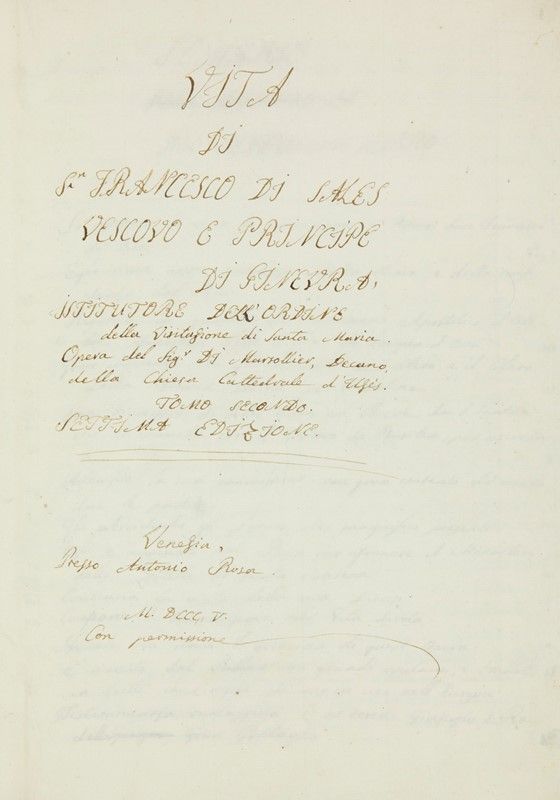 VITA
DI
S.n FRANCESCO DI SALES
VESCOVO E PRINCIPE
DI GINEVRA,
ISTITUTORE DELL'ORDINE
della Visitazione di Santa Maria.
Opera del Sigr Di Marsollier, Decano,
della Chiesa Cattedrale d'Usès.
TOMO SECONDO.
SETTIMA EDIZIONE.
Venezia,
Presso Antonio Rosa.
M. DCCC. V.
Con permissione